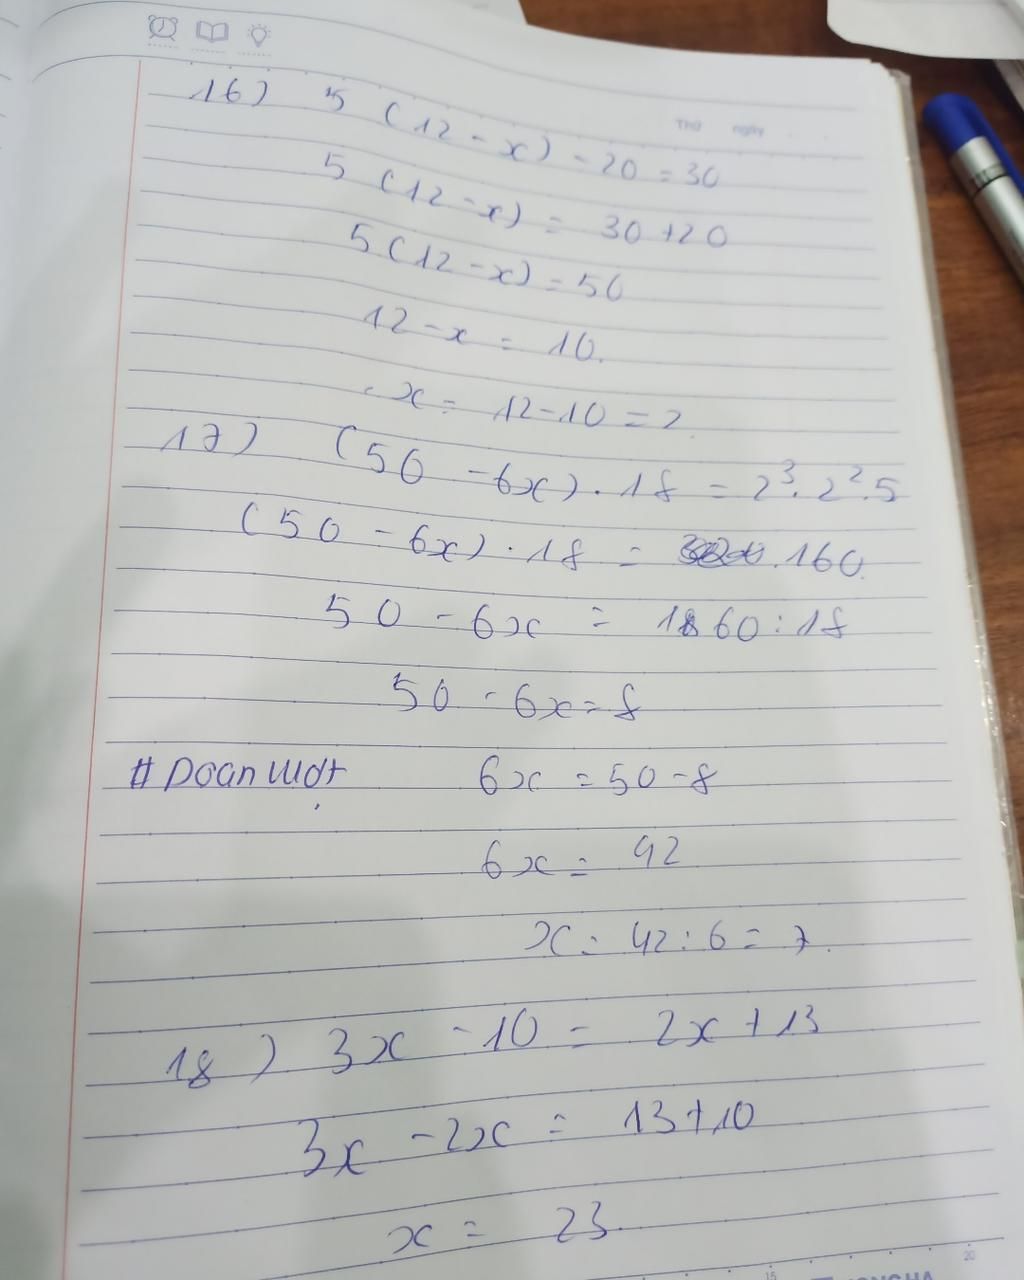 Thứ ngày
16) 5 (12 - x) - 20 = 30
5 (12 - x) = 30 + 20
5 (12 - x) = 50
12 - x = 10.
x = 12 - 10 = 2
17) (50 - 6x) . 18 = 2³. 2². 5
(50 - 6x) . 18 = 160
50 - 6x = 160 : 18
50 - 6x = 8
# Doan Wdt 6x = 50 - 8
6x = 42
x = 42 : 6 = 7.
18) 3x - 10 = 2x + 13
3x - 2x = 13 + 10
x = 23.
15 20